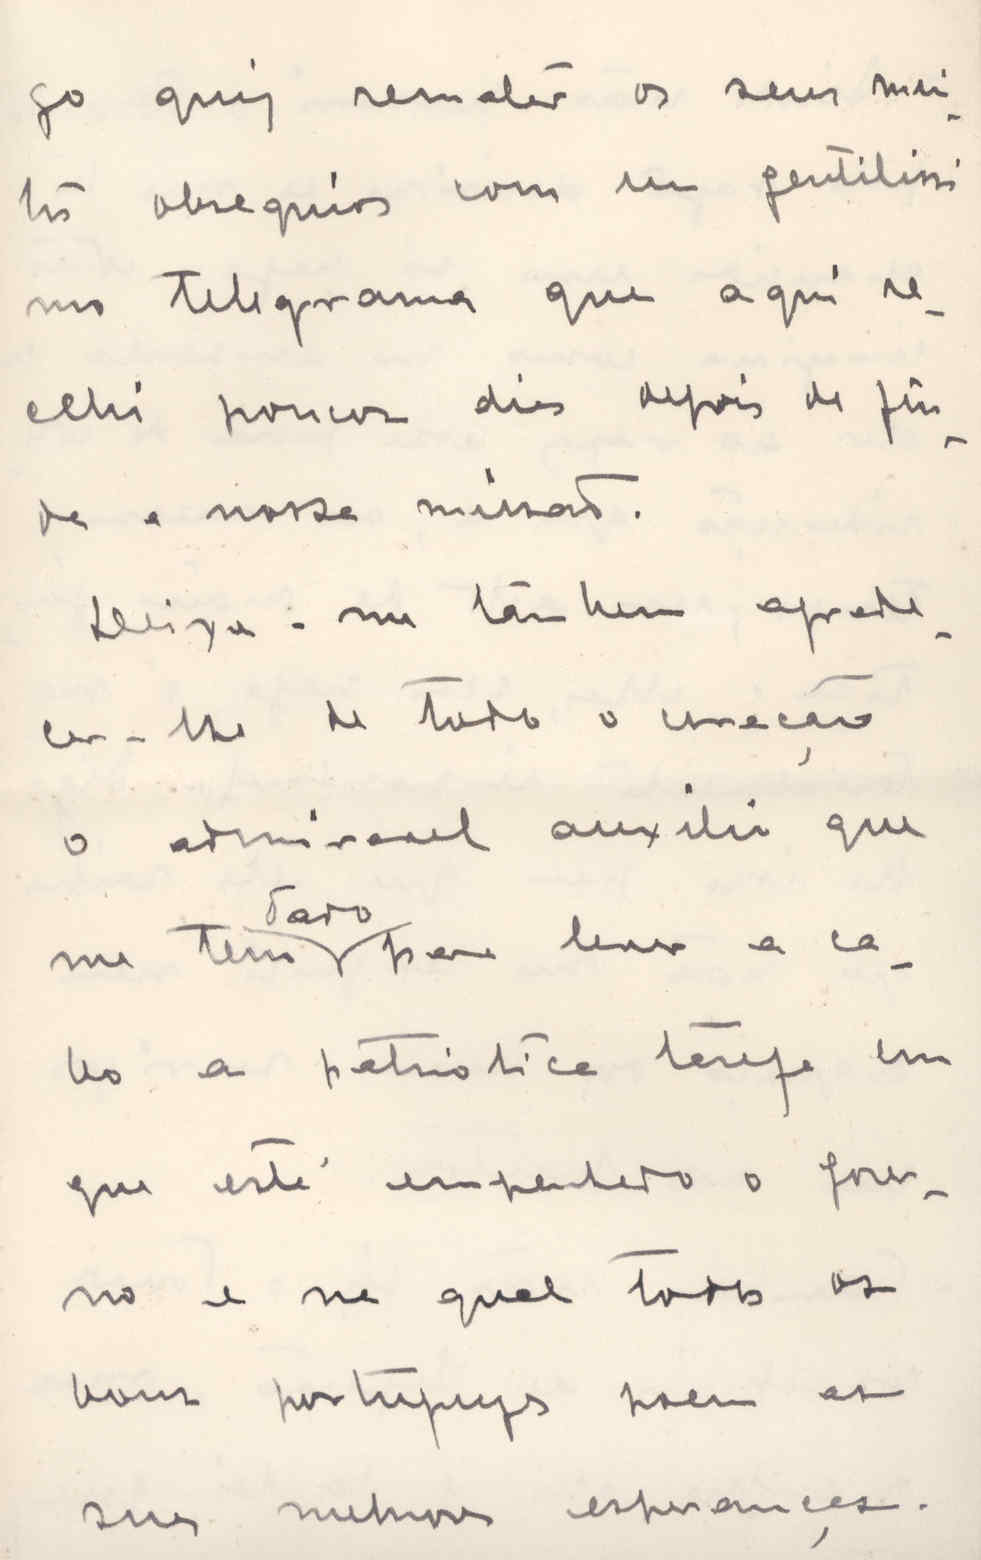 go quiz rematar os seus mui-
tos obsequios com um gentilissi
mo telegrama que aqui re-
colhi poucos dias depois de fin-
da a nossa missão.
Deixe-me tambem agrade-
cer-lhe de todo o coração
o admiravel auxilio que
me tem dado para levar a ca-
bo a patriotica tarefa em
que está empenhado o gover-
no e na qual todos os
bons portuguezes poem as
suas melhores esperanças.